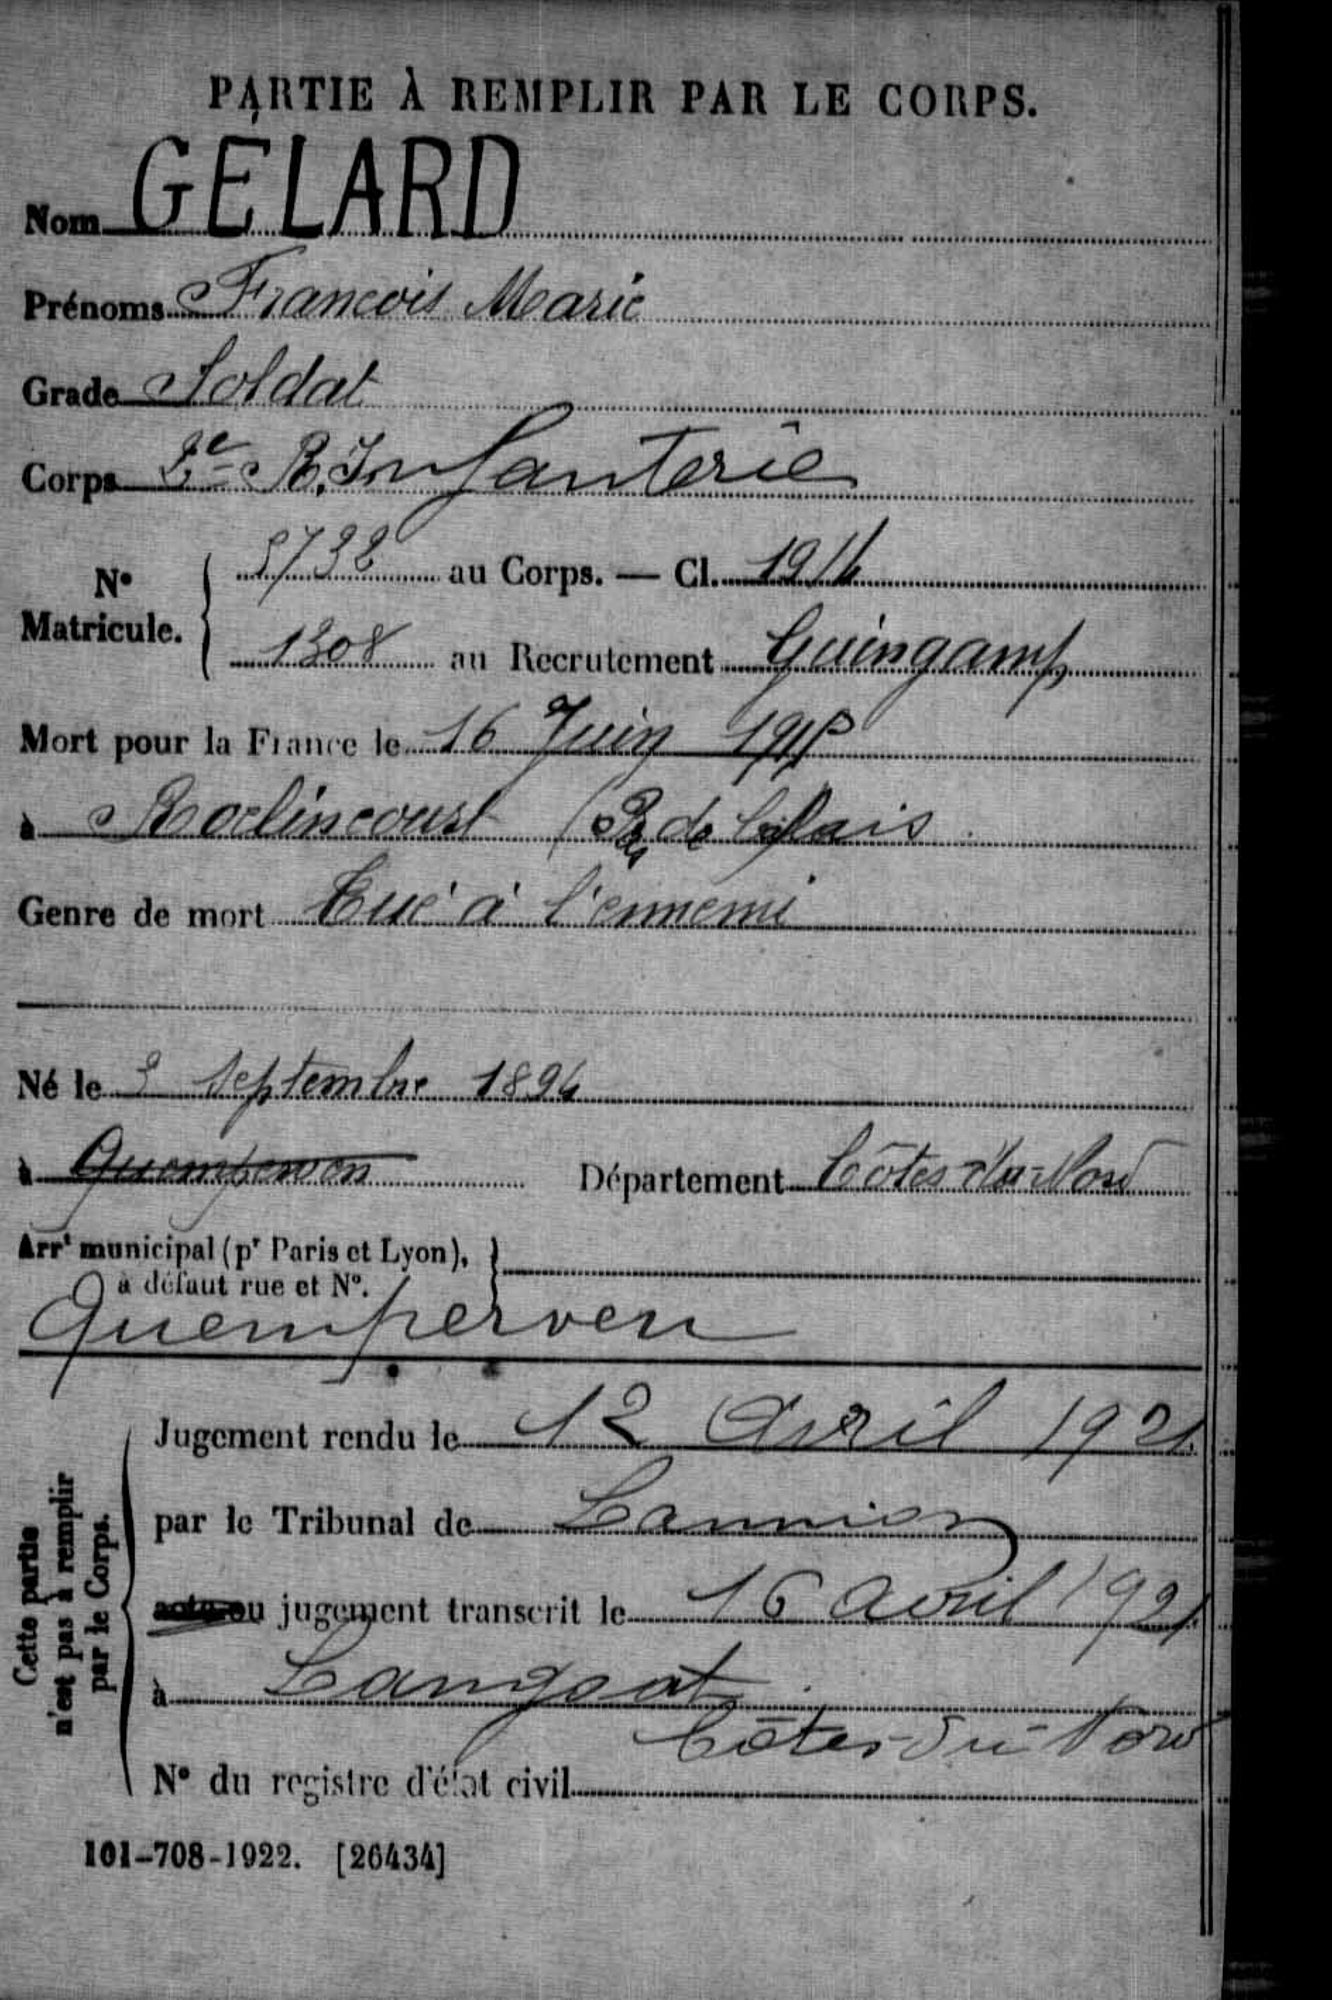 PARTIE À REMPLIR PAR LE CORPS.
Nom GÉLARD
Prénoms François Marie
Grade Soldat
Corps 2e R. Infanterie
N° Matricule. 5732 au Corps. — Cl. 1914
1308 au Recrutement Guingamp
Mort pour la France le 16 Juin 1915
à Roclincourt (Pas de Calais
Genre de mort Tué à l'ennemi
Né le 3 Septembre 1894
à Quemperven Département Côtes-du-Nord
Arrt municipal (pr Paris et Lyon),
à défaut rue et N°.
Quemperven
Cette partie n'est pas à remplir par le Corps.
Jugement rendu le 12 Avril 1921
par le Tribunal de Lannion
acte ou jugement transcrit le 16 avril 1921
à Langoat
Côtes-du-Nord
N° du registre d'état civil
101-708-1922. [26434]